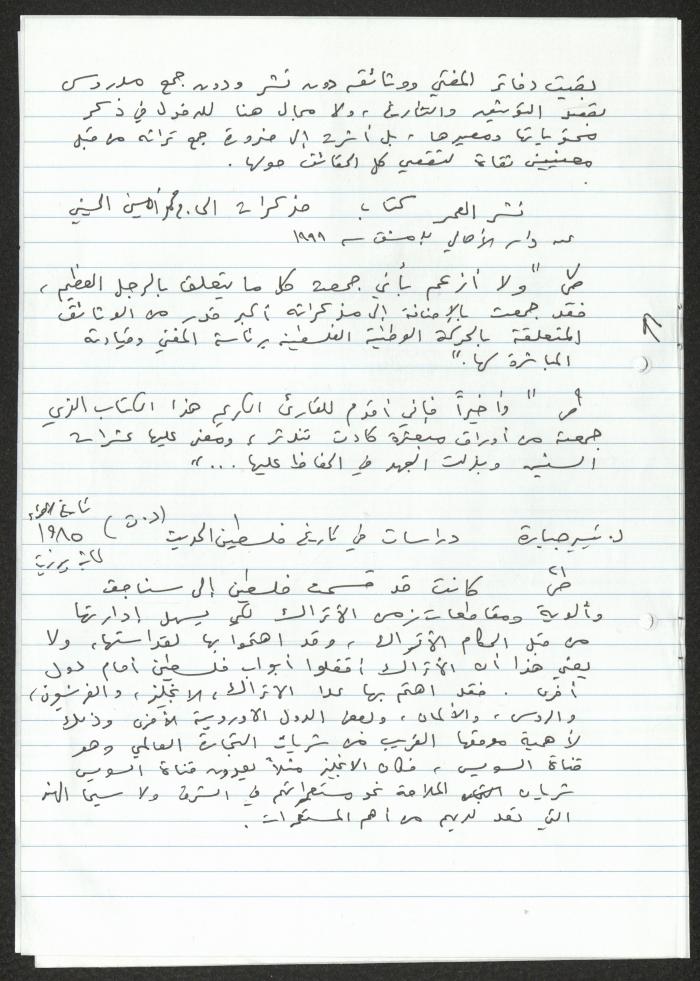 بقيت دفاتر المفتي ووثائقه دون نشر ودون جمع مدروس
بقصد التوثيق والتأريخ، ولا مجال هنا للدخول في ذكر
محتوياتها ومصيرها، بل أشرت إلى ضرورة جمع تراثه من قبل
معنيين ثقاة لتقصي كل الحقائق حولها.
نشر العمر كتاب مذكرات الحاج محمد أمين الحسيني
عن دار الأهالي بدمشق سنة ١٩٩٩
"ولا أزعم بأني جمعت كل ما يتعلق بالرجل العظيم،
فقد جمعت بالإضافة إلى مذكراته أكبر قدر من الوثائق
المتعلقة بالحركة الوطنية الفلسطينية برئاسة المفتي وقيادته
المباشرة لها."
"وأخيراً فإني أقدم للقارئ الكريم هذا الكتاب الذي
جمعته من أوراق مبعثرة كادت تندثر، ومضى عليها عشرات
السنين وبذلت الجهد في الحفاظ عليها ..."
د. تيسير جبارة دراسات في تاريخ فلسطين الحديث (د.ت)
تاريخ
١٩٨٥
كانت قد قسمت فلسطين إلى سناجق
وألوية ومقاطعات زمن الأتراك لكي يسهل إدارتها
من قبل الحكام الأتراك، وقد اهتموا بها لقداستها، ولا
يعني هذا أن الأتراك أقفلوا أبواب فلسطين أمام دول
أخرى. فقد اهتم بها عدا الأتراك، الإنجليز، والفرنسيون،
والروس، والألمان، وبعض الدول الأوروبية الأخرى وذلك
لأهمية موقعها القريب من شريان التجارة العالمي وهو
قناة السويس، فكان الإنجليز مثلاً يعدون قناة السويس
شريان الملاحة نحو مستعمراتهم في الشرق ولا سيما الهند
التي تعد لديهم من أهم المستعمرات.